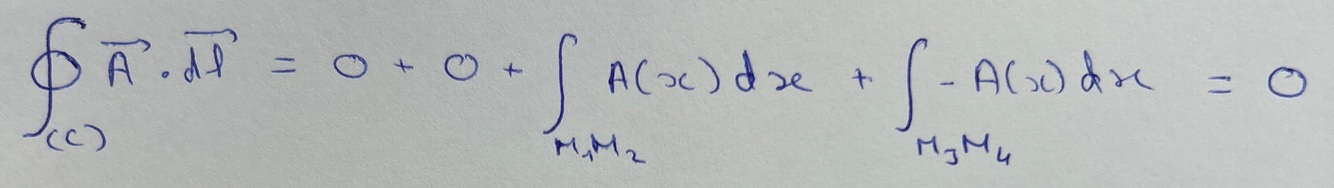 ∮_(C) A⃗ · dl⃗ = 0 + 0 + ∫_{M₁M₂} A(x) dx + ∫_{M₃M₄} - A(x) dx = 0